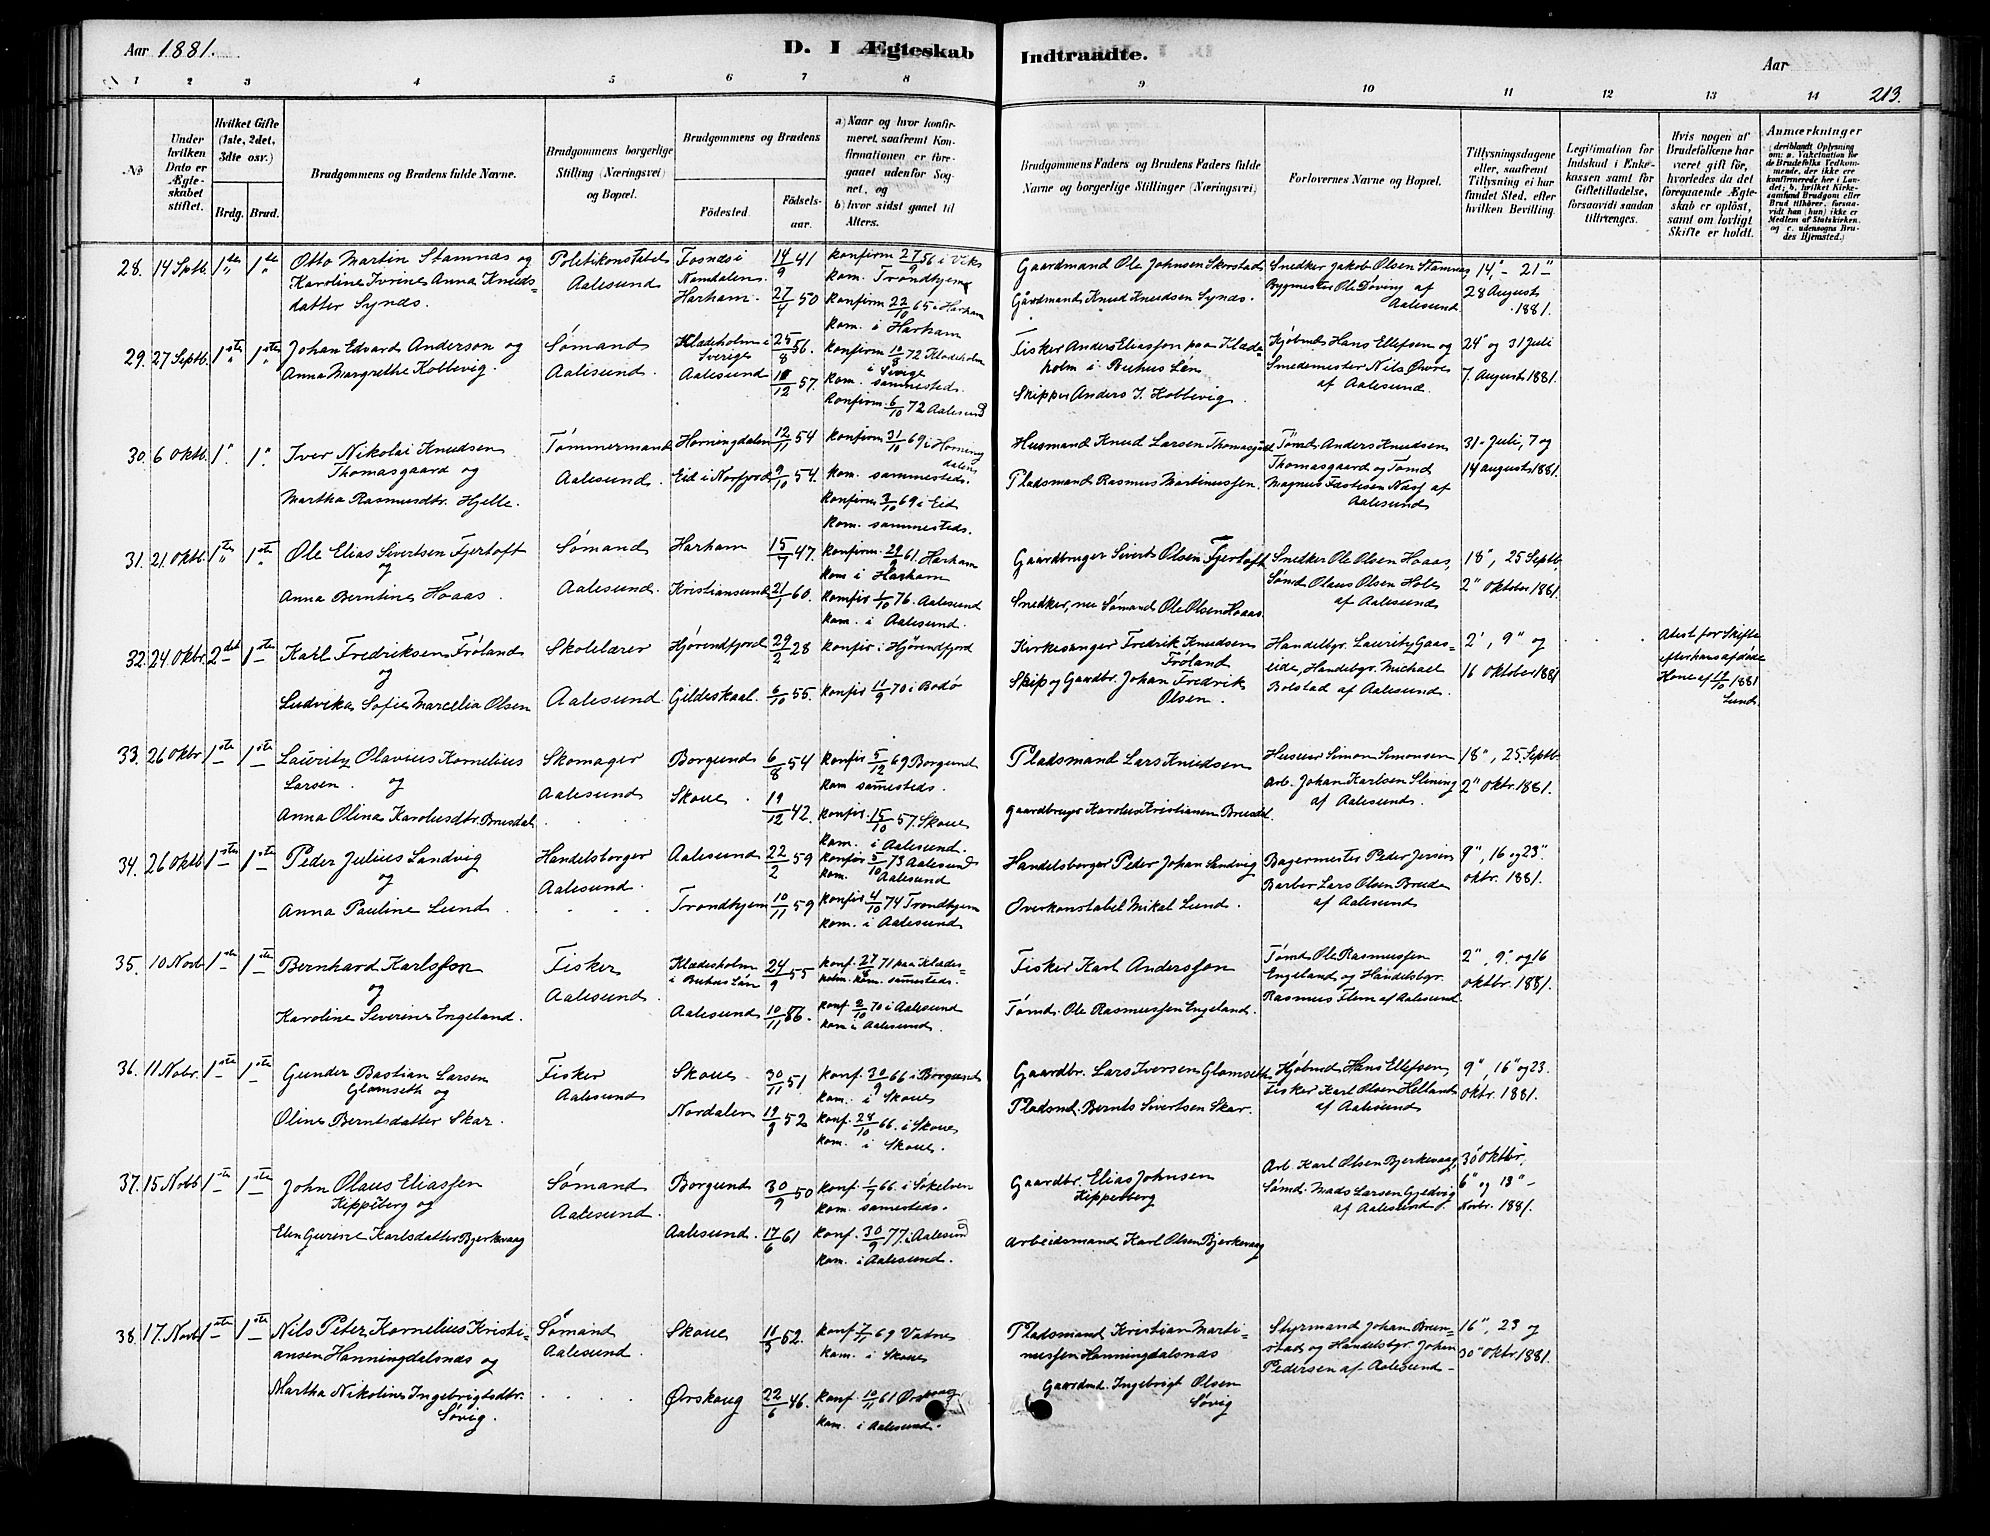 Aar 1881.
D. I Ægteskab
Indtraadte.
Aar
213.
1 2 3 4 5 6 7 8 9 10 11 12 13 14
No
Under hvilken Dato er Ægteskabet stiftet.
Hvilket Gifte (1ste, 2det, 3die osv.)
Brdg. Brud.
Brudgommens og Brudens fulde Navne.
Brudgommens borgerlige Stilling (Næringsvei) og Bopæl.
Brudgommens og Brudens
Fødested. Fødselsaar.
a) Naar og hvor konfirmeret, saafremt Konfirmationen er foregaaet udenfor Sognet, og
b) hvor sidst gaaet til Alters.
Brudgommens Faders og Brudens Faders fulde Navne og borgerlige Stillinger (Næringsvei)
Forlovernes Navne og Bopæl.
Tillysningsdagene eller, saafremt Tillysning ei har fundet Sted, efter hvilken Bevilling.
Legitimation for Indskud i Enkekassen samt for Giftetilladelse, forsaavidt saadan tiltrænges.
Hvis nogen af Brudefolkene har været gift før, hvorledes da det foregaaende Ægteskab er opløst, samt om lovligt Skifte er holdt.
Anmærkninger
(deriblandt Oplysning om: a. Vakcination for de Brudefolks Vedkommende, der ikke ere konfirmerede her i Landet; b. hvilket Kirkesamfund Brudgom eller Brud tilhører, forsaavidt han (hun) ikke er Medlem af Statskirken, og c. udensogns Brudes Hjemsted.)
28. 14 Septb. 1ste 1ste
Otto Martin Stamnæs og
Karoline Ivrine Anna Knudsdatter Synæs.
Politikonstabel
Aalesund
Fosnæs i Namdalen 14/9 41
Harham. 27/4 50
konfirm 27/9 56 i Viks
kom. Trondhjem
konfirm 22/10 65 i Harham
kom. i Harham
Gaardmand Ole Johnsen Skorstad
Gårdmand Knud Knudsen Synæs.
Snedker Jakob Olsen Stamnes
Bygmester Ole Døving af Aalesund
14"- 21"
28 August
1881.
29. 27 Septb. 1ste 1ste
Johan Edvard Anderson og
Anna Margrethe Kobbevig.
Sømand
Aalesund.
Klædesholm i Sverige 25/8 56.
Aalesund 10/12 57.
konfirm 10/8 72 Klædeholm i Sverige
kom. sammesteds.
Konfirm. 6/10 72 Aalesund
Fisker Anders Eliasson paa Klædeholm i Buhus Lén
Skipper Anders J. Kobbevig.
Kjøbmd Hans Ellefsen og
Smedemester Nils Øvre
af Aalesund.
24" og 31 Juli
7. August 1881.
30. 6 Oktb. 1" 1"
Iver Nikolai Knudsen
Thomasgaard og
Martha Rasmusdtr. Hjelle.
Tømmermand
Aalesund.
Horningdalen 12/11 54
Eid i Norfjord 9/10 54.
konfirm 31/10 69 i Horningdalen
kom. sammesteds.
konfirm 3/10 69 i Eid
kom. sammesteds.
Husmand Knud Larsen Thomasgård
Pladsmand Rasmus Martinussen.
Tømd. Anders Knudsen
Thomasgaard og Tømd
Magnus Fastesen Næss af
Aalesund
31- Juli, 7 og
14 august 1881.
31. 21. Oktb. 1ste 1ste
Ole Elias Sivertsen Fjertoft
og
Anna Berntine Hoaas.
Sømand
Aalesund.
Harham 15/7 47.
Kristiansund 21/1 60.
konfirm. 29/9 61 Harham
kom i Harham
konfir 1/10 76. Aalesund
kom. i Aalesund.
Gaardbruger Sivert Olsen Fjertoft
Snedker, nu Sømand Ole Olsen Hoaas.
Snedker Ole Olsen Hoaas,
Sømd Olaus Olsen Hole
af Aalesund
18", 25 Septb.
2" Oktober 1881.
32. 24 Oktbr. 2det 1ste
Karl Fredriksen Frøland
og
Ludvika Sofie Marcelia Olsen
Skolelærer
Aalesund.
Hjørendfjord 29/2 28
Gildeskaal. 6/10 55.
konfir i Hjørendfjord
konfir 11/9 70 i Bodø
Kirkesanger Fredrik Knudsen Frøland
Skip og Gaardbr. Johan Fredrik Olsen.
Handelbgr. Lauritz Gaaseide, Handelbgr. Michael
Bolstad af Aalesund.
2', 9" og
16 oktober 1881
Atest for Skifte
efter hans afdøde
Kone af 14/10 1881
Lund.
33. 26 Oktbr 1ste 1ste
Lauritz Olavius Kornelius
Larsen. og
Anna Olina Karolusdtr. Brusdal
Skomager
Aalesund
Borgund 6/8 54
Skoue. 19/12 42.
konfir 5/12 69 Borgund
kom samesteds.
konfir. 15/10 57. Skoue
kom. i Aalesund.
Pladsmand Lars Knudsen
gaardbruger Karolus Kristiansen Brusdal.
Huseier Simon Simonsen
Arb. Johan Karlsen Slining
af Aalesund.
18", 25 Septb.
2" Oktbr. 1881.
34. 26 Oktb 1ste 1ste
Peder Julius Sandvig
og
Anna Pauline Lund
Handelsborger
Aalesund.
Aalesund 22/2 59
Trondhjem 10/11 59
konfir 5/10 73 Aalesund
kom. Aalesund
konfir 4/10 74 Trondhjem
kom. i Aalesund
Handelsborger Peder Johan Sandvig
Overkonstabel Mikal Lund.
Bagermester Peder Jensen
Barber Lars Olsen Brude
af Aalesund
9", 16 og 23".
oktbr. 1881.
35. 10 Novb 1ste 1ste
Bernhard Karlsson
og
Karoline Severine Engeland.
Fisker
Aalesund.
Klædesholm i Buhus Lén 24/9 55
Aalesund 10/11 86.
konf. 27/8 71 paa Klædesholm. kom. samesteds.
konf. 2/10 70 i Aalesund
kom i Aalesund.
Fisker Karl Andersson
Tømd. Ole Rasmussen Engeland.
Tømd Ole Rasmussen
Engeland og Handelsbgr.
Rasmus Flem af Aalesund.
2", 9". og 16
oktbr. 1881.
36. 11 Nobr. 1ste 1ste
Gunder Bastian Larsen
Glomseth og
Oline Berntsdatter Skar.
Fisker
Aalesund
Skoue. 30/11 51
Nordalen 19/9 52
konf. 30/9 66 i Borgund
kom. i Skoue
konf. 28/10 66. i Skoue
kom. i Skoue.
Gaardbr. Lars Iversen Glomseth
Pladsmd. Bernts Sivertsen Skar.
Kjøbmd Hans Ellefsen,
Fisker Karl Olsen Helland
af Aalesund
9" 16" og 23.
oktbr. 1881.
37. 15 Novb. 1ste 1ste
John Olaus Eliassen
Kippeberg og
Elen Gurine Karlsdatter Bjerkevaag
Sømand
Aalesund.
Borgund 30/9 50
Aalesund. 17/6 61
konf. 1/7 66. i Søkelven
kom. samesteds.
konf. 30/9 77. i Aalesund
kom. i Aalesund.
Gaardbr. Elias Johnsen
Kipperberg
Arbeidsmand Karl Olsen Bjerkevaag
Arb. Karl Olsen Bjerkevaag,
Sømd. Mads Larsen Gjedvig
af Aalesund.
30 oktbr,
6" og 13"-
Novbr. 1881.
38. 17. Novb 1ste 1ste
Nils Peter Kornelius Kristiansen Honningdalsnæs og
Martha Nikoline Ingebrigtsdtr.
Søvig.
Sømand
Aalesund.
Skoue 11/5 52.
Ørskoug 22/6 46.
konf 7/11 69 Vatne
kom. i Skoue
konf. 10/11 61 Ørskoug
kom. i Aalesund.
Pladsmand Kristian Martinussen Honningdalsnæs
Gaardmd. Ingebrigt Olsen
Søvig
Styrmand Johan Brunstad og Handelsbgr. Johan
Pedersen af Aalesund -
16", 23 og
30" Oktbr. 1881.